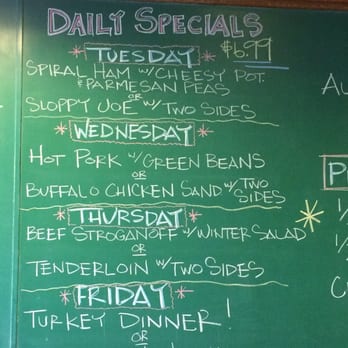 DAILY SPECIALS
*TUESDAY* $6.99
SPIRAL HAM W/ CHEESY POT.
& PARMESAN PEAS
OR
SLOPPY JOE W/ TWO SIDES
*WEDNESDAY*
HOT PORK W/ GREEN BEANS
OR
BUFFALO CHICKEN SAND W/ TWO
SIDES
*THURSDAY*
BEEF STROGANOFF W/ WINTER SALAD
OR
TENDERLOIN W/ TWO SIDES
*FRIDAY*
TURKEY DINNER!
OR
AU
P
1/
1/
C